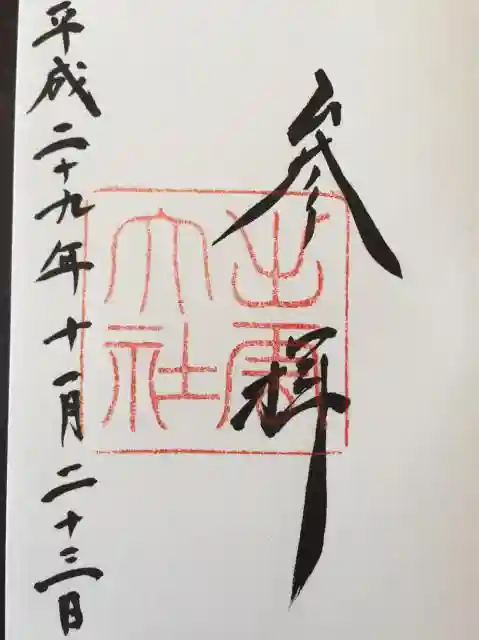 参拝
出雲
大社
平成二十九年十一月二十三日